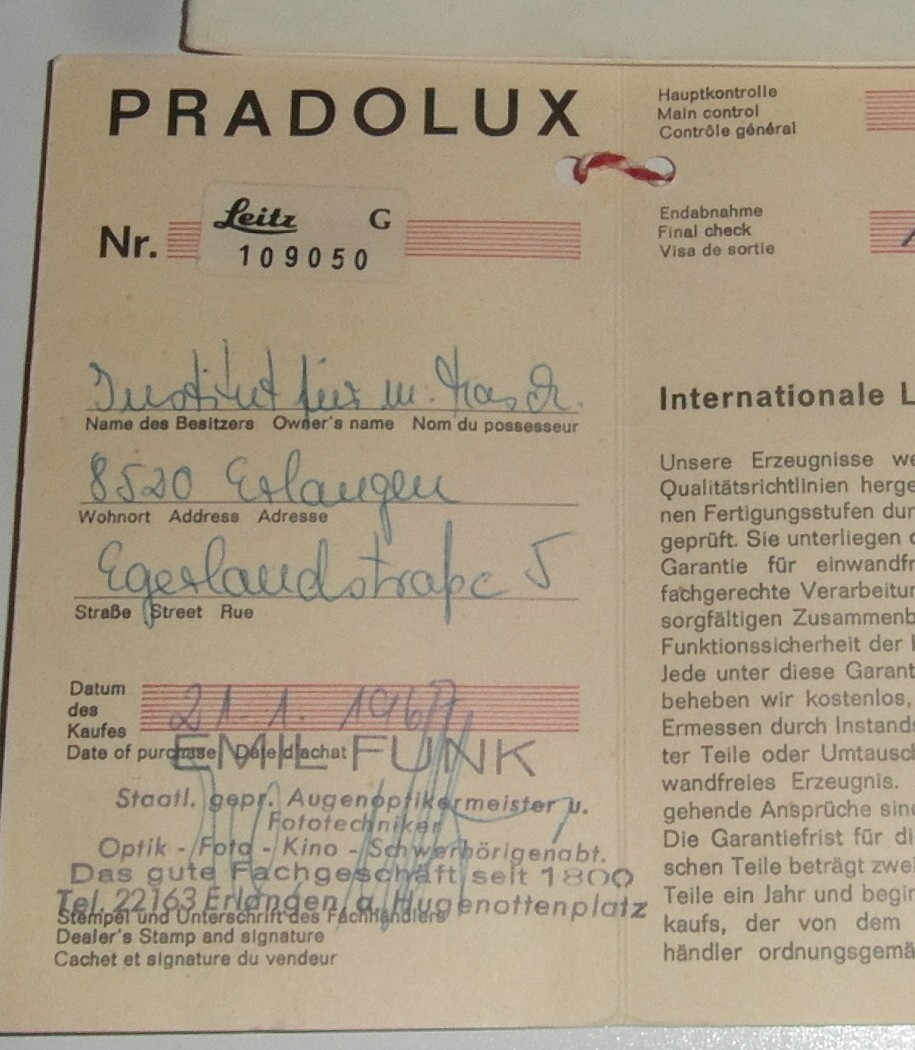 PRADOLUX
Nr. Leitz G
109050
Institut für
Name des Besitzers Owner's name Nom du possesseur
8520 Erlangen
Wohnort Address Adresse
Egerlandstraße 5
Straße Street Rue
Datum
des
Kaufes 21. 1. 196
Date of purchase Date d'achat
EMIL FUNK
Staatl. gepr. Augenoptikermeister u.
Fototechniker
Optik - Foto - Kino - Schwerhörigenabt.
Das gute Fachgeschäft seit 1800
Tel. 22163 Erlangen, a. Hugenottenplatz
Stempel und Unterschrift des Fachhändlers
Dealer's Stamp and signature
Cachet et signature du vendeur
Hauptkontrolle
Main control
Contrôle général
Endabnahme
Final check
Visa de sortie
Internationale L
Unsere Erzeugnisse we
Qualitätsrichtlinien herge
nen Fertigungsstufen dur
geprüft. Sie unterliegen
Garantie für einwandfr
fachgerechte Verarbeitur
sorgfältigen Zusammenb
Funktionssicherheit der
Jede unter diese Garant
beheben wir kostenlos,
Ermessen durch Instands
ter Teile oder Umtausch
wandfreies Erzeugnis.
gehende Ansprüche sind
Die Garantiefrist für di
schen Teile beträgt zwei
Teile ein Jahr und begin
kaufs, der von dem
händler ordnungsgemä